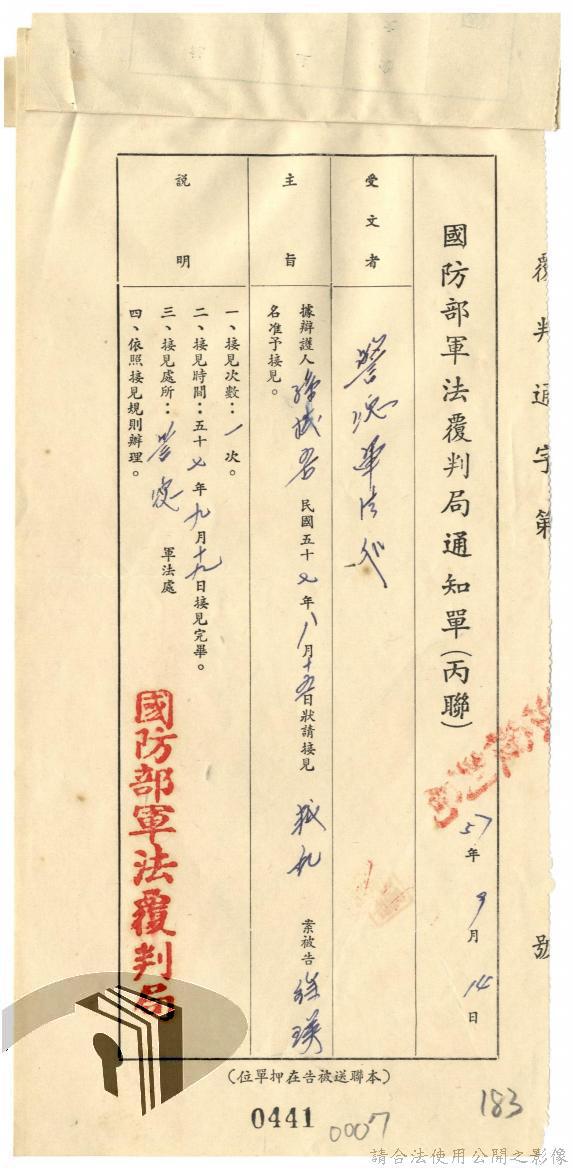 覆判通字第 號
國防部軍法覆判局通知單(丙聯) 57年9月14日
受文者 警總軍法處
主旨 據辯護人 民國五十七年八月十五日狀請接見 叛亂 案被告 徐瑛
名准予接見。
說明 一、接見次數:一次。
二、接見時間:五十七年九月十九日接見完畢。
三、接見處所:警總 軍法處
四、依照接見規則辦理。
國防部軍法覆判局
(本聯送被告在押單位)
0441
0007
183
請合法使用公開之影像